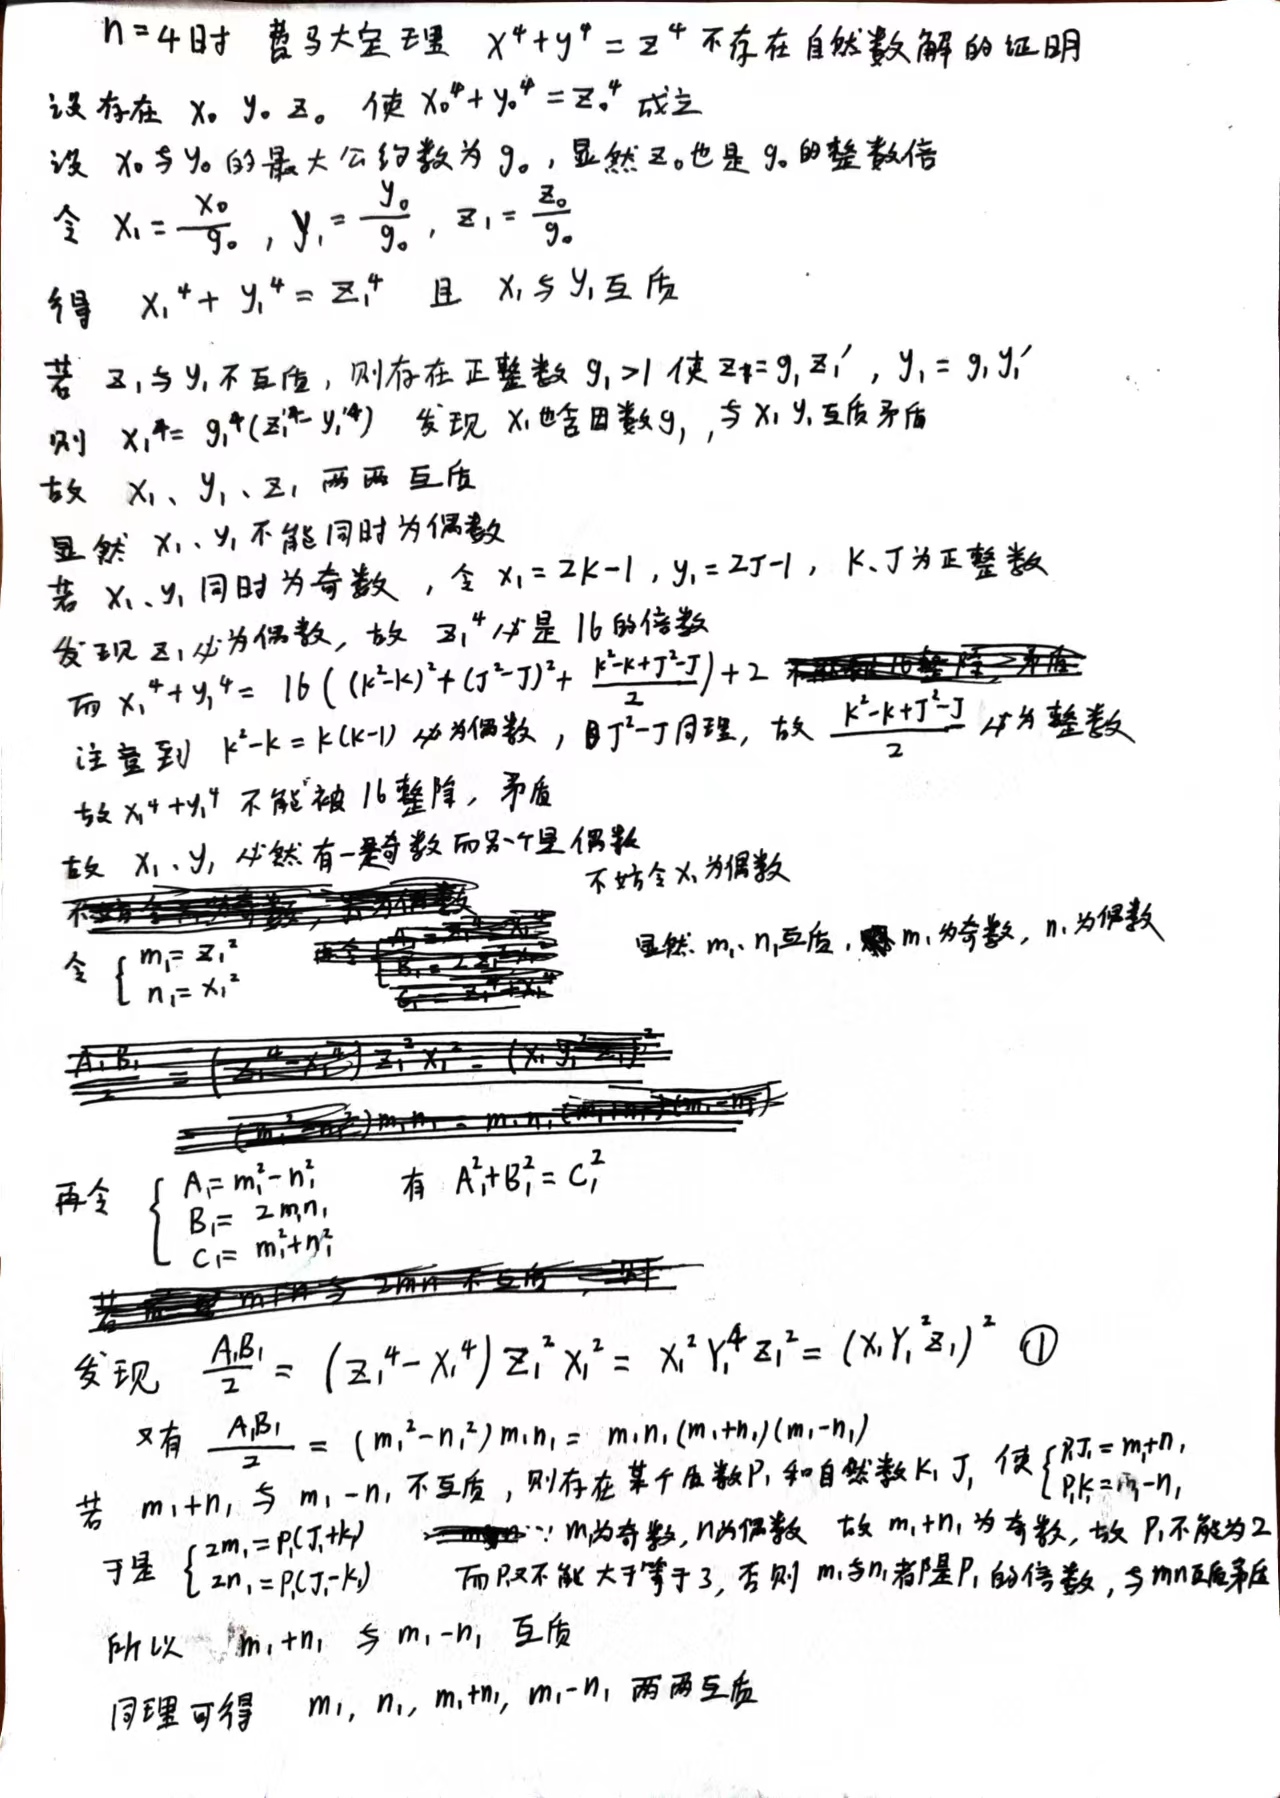 n=4时 费马大定理 x⁴+y⁴=z⁴不存在自然数解的证明
设存在 x₀ y₀ z₀ 使 x₀⁴+y₀⁴=z₀⁴ 成立
设 x₀与y₀的最大公约数为g₀，显然z₀也是g₀的整数倍
令 x₁=x₀/g₀，y₁=y₀/g₀，z₁=z₀/g₀
得 x₁⁴+y₁⁴=z₁⁴ 且 x₁与y₁互质
若 z₁与y₁不互质，则存在正整数g₁>1使z₁=g₁z₁′，y₁=g₁y₁′
则 x₁⁴=g₁⁴(z₁′⁴-y₁′⁴) 发现 x₁也含因数g₁，与x₁y₁互质矛盾
故 x₁、y₁、z₁ 两两互质
显然 x₁、y₁不能同时为偶数
若 x₁、y₁同时为奇数，令 x₁=2K-1，y₁=2J-1，K、J为正整数
发现z₁必为偶数，故 z₁⁴必是16的倍数
而 x₁⁴+y₁⁴=16((K²-K)²+(J²-J)²+(K²-K+J²-J)/2)+2
注意到 K²-K=K(K-1)必为偶数，J²-J同理，故 (K²-K+J²-J)/2 必为整数
故x₁⁴+y₁⁴不能被16整除，矛盾
故 x₁、y₁必然有一是奇数而另一个是偶数
不妨令x₁为偶数
令 { m₁=z₁²
n₁=x₁²
显然 m₁、n₁互质，m₁为奇数，n₁为偶数
再令 { A₁=m₁²-n₁²
B₁=2m₁n₁
C₁=m₁²+n₁²
有 A₁²+B₁²=C₁²
发现 A₁B₁/2=(z₁⁴-x₁⁴)z₁²x₁²=x₁²Y₁⁴z₁²=(x₁Y₁²z₁)² ①
又有 A₁B₁/2=(m₁²-n₁²)m₁n₁=m₁n₁(m₁+n₁)(m₁-n₁)
若 m₁+n₁与m₁-n₁不互质，则存在某个质数P₁和自然数K₁ J₁ 使 { P₁J₁=m₁+n₁
P₁K₁=m₁-n₁
于是 { 2m₁=P₁(J₁+K₁)
2n₁=P₁(J₁-K₁)
∵ m₁为奇数，n为偶数 故m₁+n₁为奇数，故P₁不能为2
而P₁又不能大于等于3，否则m₁与n₁都是P₁的倍数，与mn互质矛盾
所以 m₁+n₁与m₁-n₁ 互质
同理可得 m₁, n₁, m₁+n₁, m₁-n₁ 两两互质